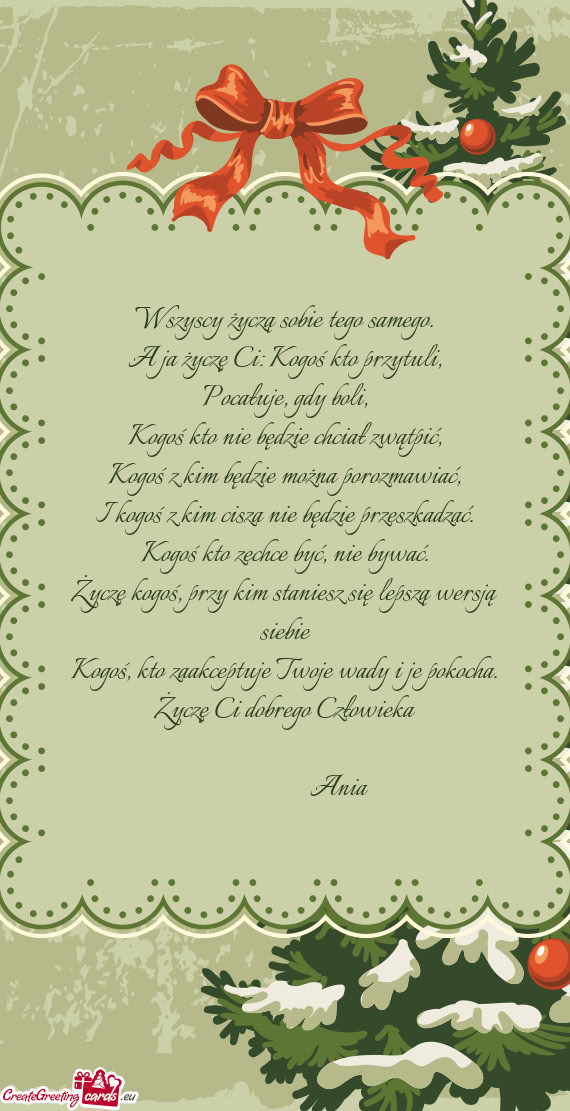 Wszyscy życzą sobie tego samego.
A ja życzę Ci: Kogoś kto przytuli,
Pocałuje, gdy boli,
Kogoś kto nie będzie chciał zwątpić,
Kogoś z kim będzie można porozmawiać,
I kogoś z kim cisza nie będzie przeszkadzać.
Kogoś kto zechce być, nie bywać.
Życzę kogoś, przy kim staniesz się lepszą wersją
siebie
Kogoś, kto zaakceptuje Twoje wady i je pokocha.
Życzę Ci dobrego Człowieka
Ania
CreateGreeting cards .eu